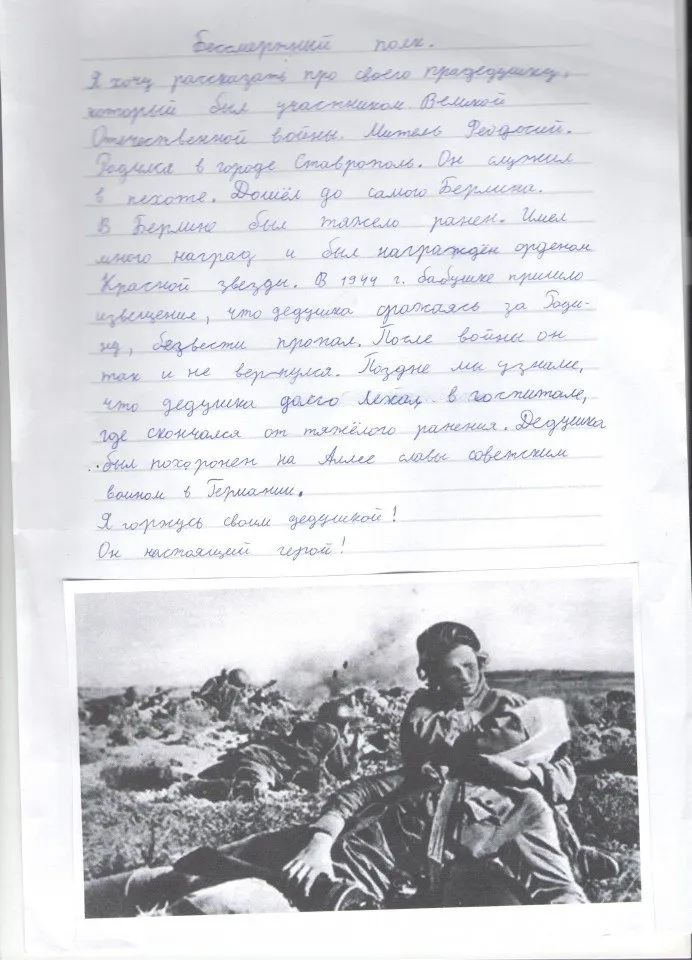 Бессмертный полк.
Я хочу рассказать про своего прадедушку,
который был участником Великой
Отечественной войны. Митель Феодосий.
Родился в городе Ставрополь. Он служил
в пехоте. Дошёл до самого Берлина.
В Берлине был тяжело ранен. Имел
много наград и был награждён орденом
Красной звезды. В 1944 г. бабушке пришло
извещение, что дедушка сражаясь за Роди-
ну, безвести пропал. После войны он
так и не вернулся. Поздне мы узнали,
что дедушка долго лежал в госпитале,
где скончался от тяжёлого ранения. Дедушка
был похоронен на Аллее славы советским
воином в Германии.
Я горжусь своим дедушкой!
Он настоящий герой!